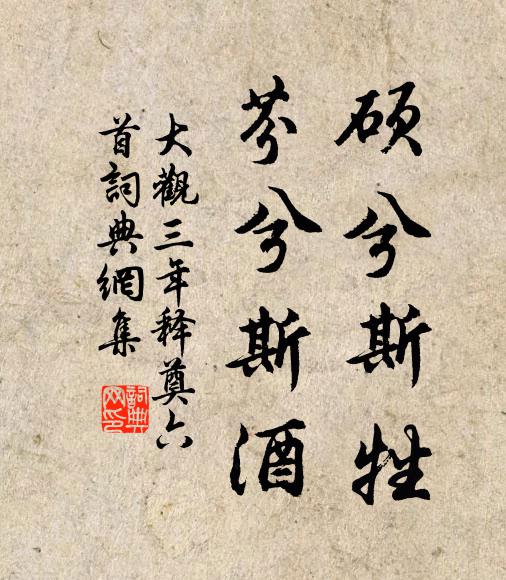 硕兮斯牲
芬兮斯酒
大觀三年释奠六
首詞典網集
詞典网印